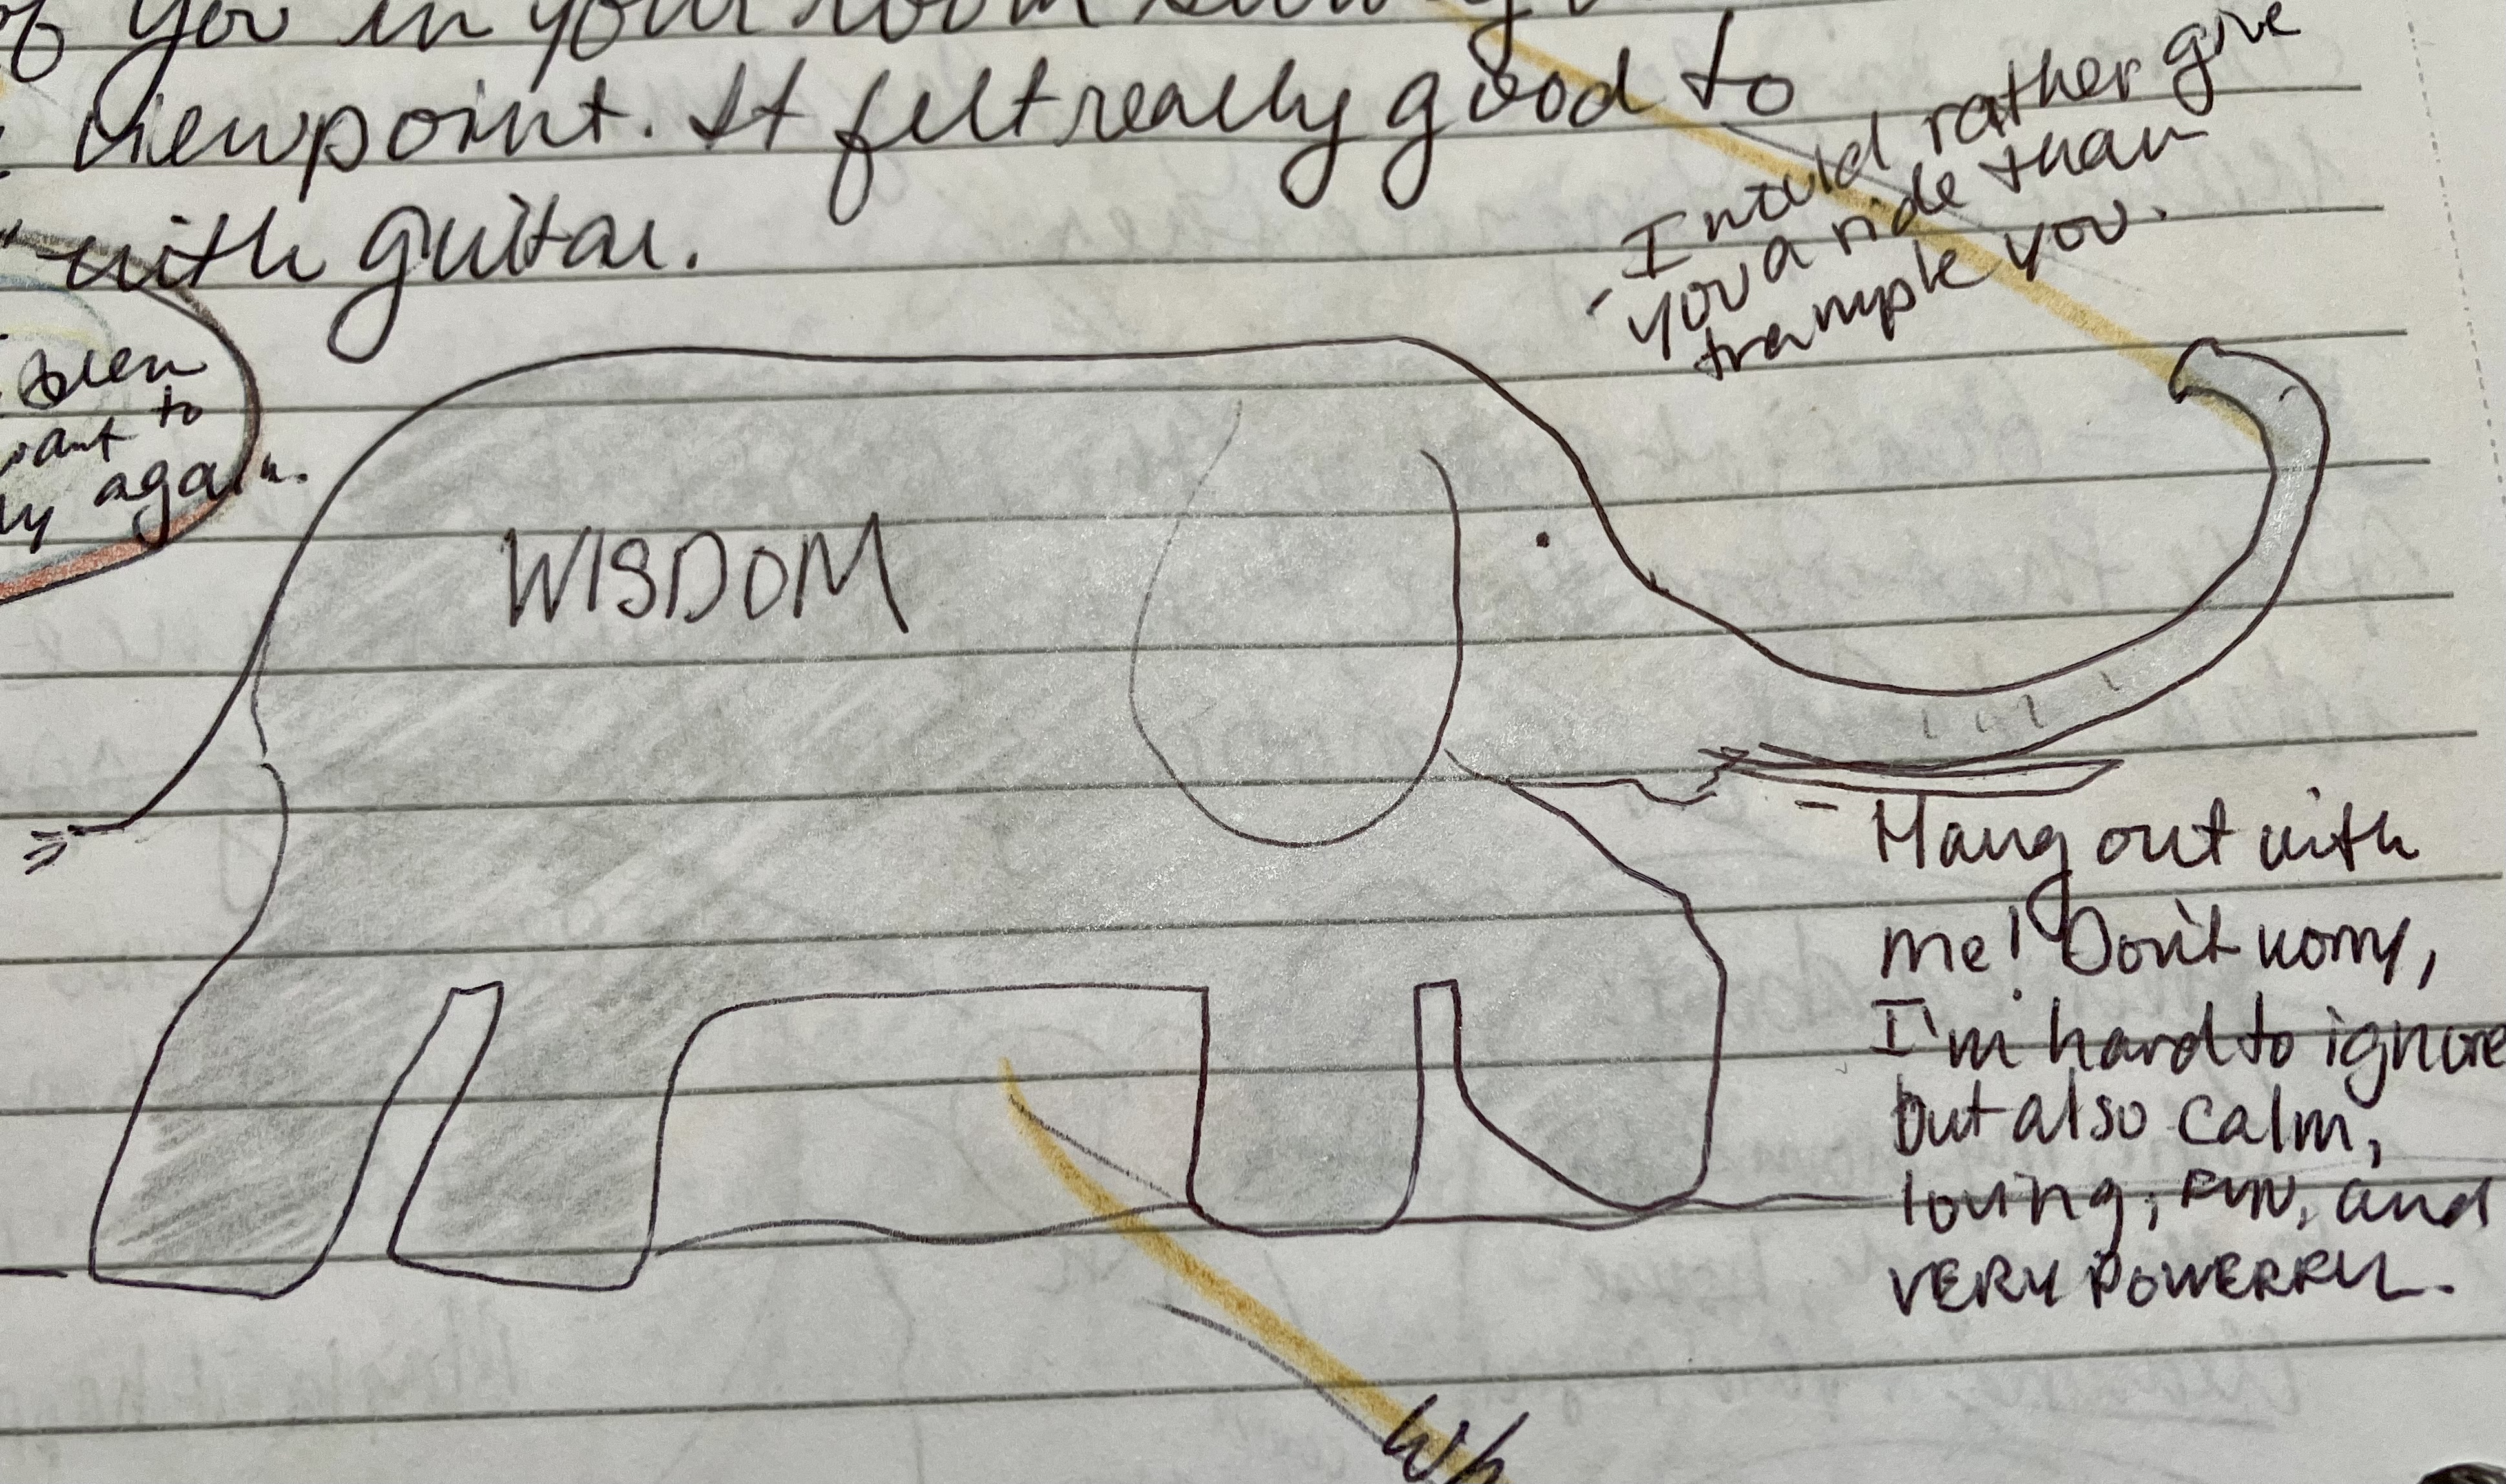 of you in your room
viewpoint. It felt really good to
" with guitar.
- I would rather give
you a ride than
trample you.
been
want to
again.
WISDOM
- Hang out with
me! Don't worry,
I'm hard to ignore
but also calm,
loving, FUN, and
VERY POWERFUL.
Wh